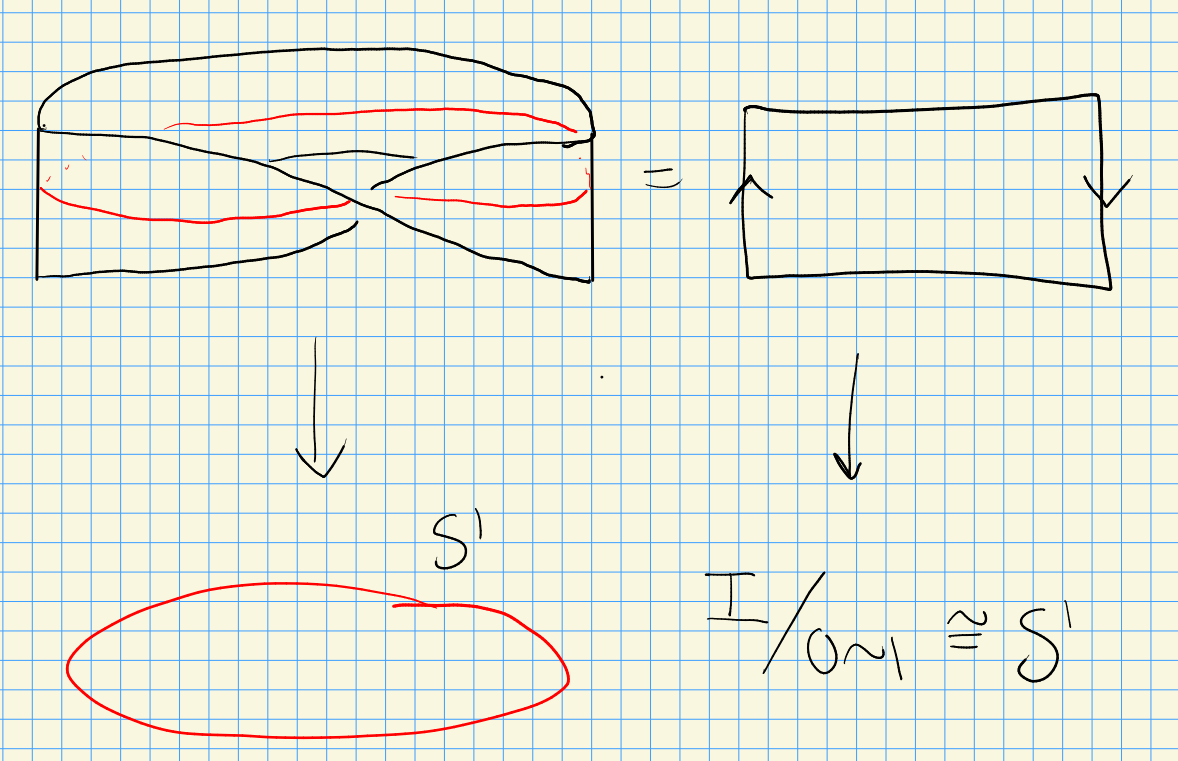 =
S¹
I/0~1 ≅ S¹